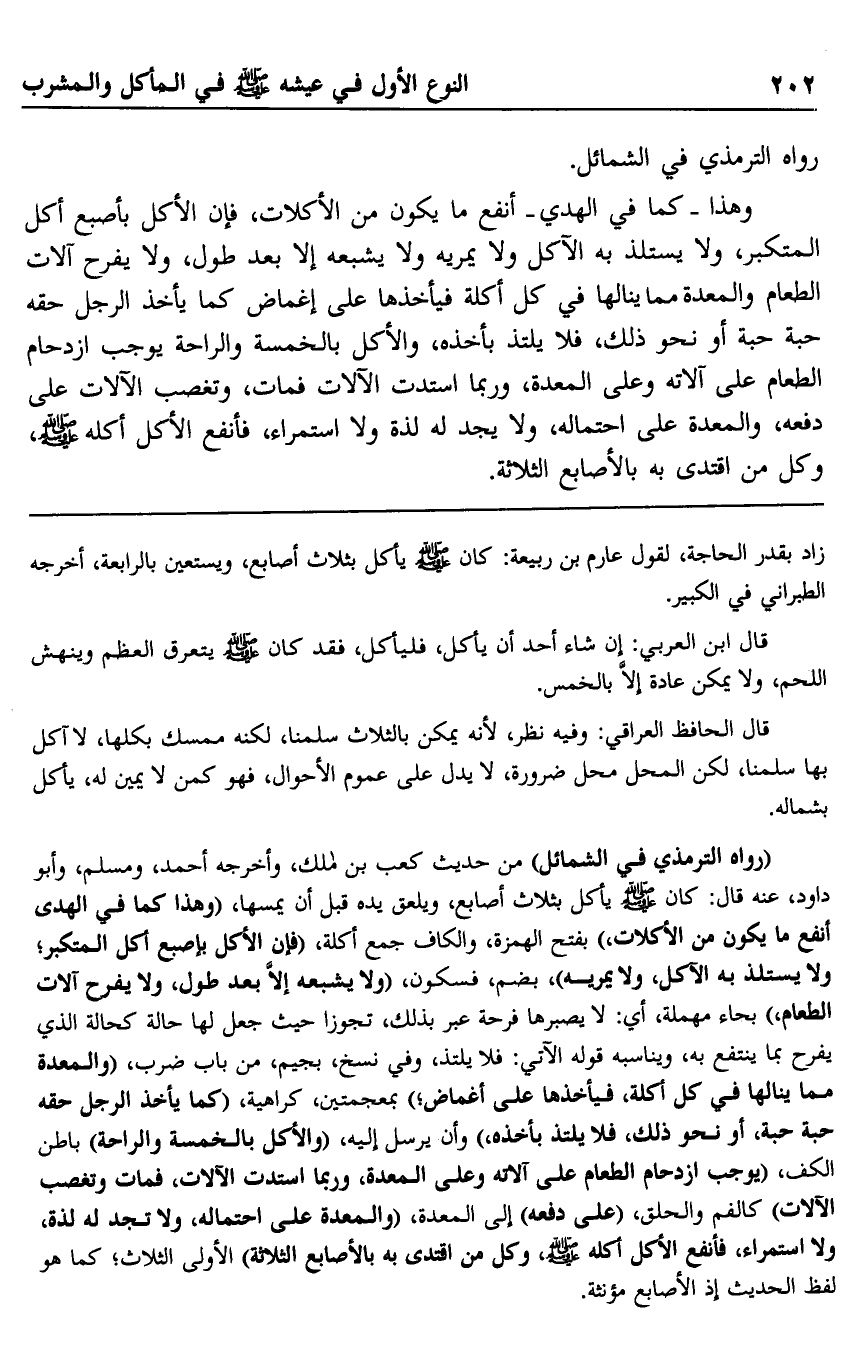 ٢٠٢ النوع الأول في عيشه ﷺ في المأكل والمشرب
رواه الترمذي في الشمائل.
وهذا ـ كما في الهدي ـ أنفع ما يكون من الأكلات، فإن الأكل بأصبع أكل
المتكبر، ولا يستلذ به الآكل ولا يمريه ولا يشبعه إلا بعد طول، ولا يفرح آلات
الطعام والمعدة مما ينالها في كل أكلة فيأخذها على إغماض كما يأخذ الرجل حقه
حبة حبة أو نحو ذلك، فلا يلتذ بأخذه، والأكل بالخمسة والراحة يوجب ازدحام
الطعام على آلاته وعلى المعدة، وربما استدت الآلات فمات، وتغصب الآلات على
دفعه، والمعدة على احتماله، ولا يجد له لذة ولا استمراء، فأنفع الأكل أكله ﷺ،
وكل من اقتدى به بالأصابع الثلاثة.
زاد بقدر الحاجة، لقول عارم بن ربيعة: كان ﷺ يأكل بثلاث أصابع، ويستعين بالرابعة، أخرجه
الطبراني في الكبير.
قال ابن العربي: إن شاء أحد أن يأكل، فليأكل، فقد كان ﷺ يتعرق العظم وينهش
اللحم، ولا يمكن عادة إلاَّ بالخمس.
قال الحافظ العراقي: وفيه نظر، لأنه يمكن بالثلاث سلمنا، لكنه ممسك بكلها، لا آكل
بها سلمنا، لكن المحل محل ضرورة، لا يدل على عموم الأحوال، فهو كمن لا يمين له، يأكل
بشماله.
(رواه الترمذي في الشمائل) من حديث كعب بن ملك، وأخرجه أحمد، ومسلم، وأبو
داود، عنه قال: كان ﷺ يأكل بثلاث أصابع، ويلعق يده قبل أن يمسها، (وهذا كما في الهدى
أنفع ما يكون من الأكلات،) بفتح الهمزة، والكاف جمع أكلة، (فإن الأكل بإصبع أكل المتكبر؛
ولا يستلذ به الآكل، ولا يمريه)، بضم، فسكون، (ولا يشبعه إلاَّ بعد طول، ولا يفرح آلات
الطعام،) بحاء مهملة، أي: لا يصبرها فرحة عبر بذلك، تجوزا حيث جعل لها حالة كحالة الذي
يفرح بما ينتفع به، ويناسبه قوله الآتي: فلا يلتذ، وفي نسخ، بجيم، من باب ضرب، (والمعدة
مما ينالها في كل أكلة، فيأخذها على أغماض؛) بمعجمتين، كراهية، (كما يأخذ الرجل حقه
حبة حبة، أو نحو ذلك، فلا يلتذ بأخذه،) وأن يرسل إليه، (والأكل بالخمسة والراحة) باطن
الكف، (يوجب ازدحام الطعام على آلاته وعلى المعدة، وربما استدت الآلات، فمات وتغصب
الآلات) كالفم والحلق، (على دفعه) إلى المعدة، (والمعدة على احتماله، ولا تجد له لذة،
ولا استمراء، فأنفع الأكل أكله ﷺ، وكل من اقتدى به بالأصابع الثلاثة) الأولى الثلاث؛ كما هو
لفظ الحديث إذ الأصابع مؤنثة.